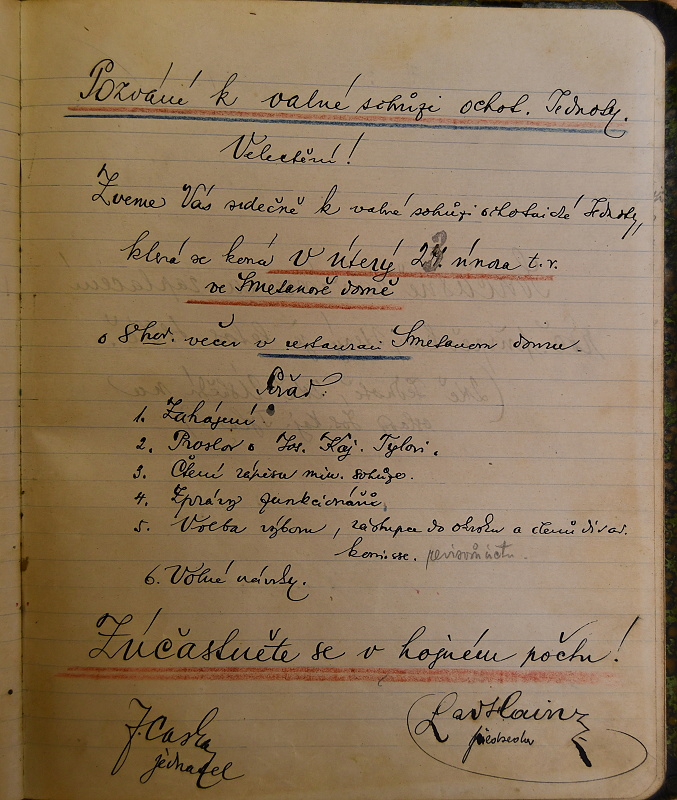 Pozvání k valné schůzi ochot. Jednoty.
Velectění!
Zveme Vás srdečně k valné schůzi ochotnické Jednoty,
která se koná v úterý 24 února t. r.
ve Smetanově domě
o 8 hod. večer v restauraci Smetanova domu.
Pořad:
1. Zahájení.
2. Proslov o Jos. Kaj. Tylovi.
3. Čtení zápisu min. schůze.
4. Zprávy funkcionářů.
5. Volba výboru, zástupce do okrsku a členů divad.
komise. revisorů účtů.
6. Volné návrhy.
Zúčastněte se v hojném počtu!
jednatel
předseda